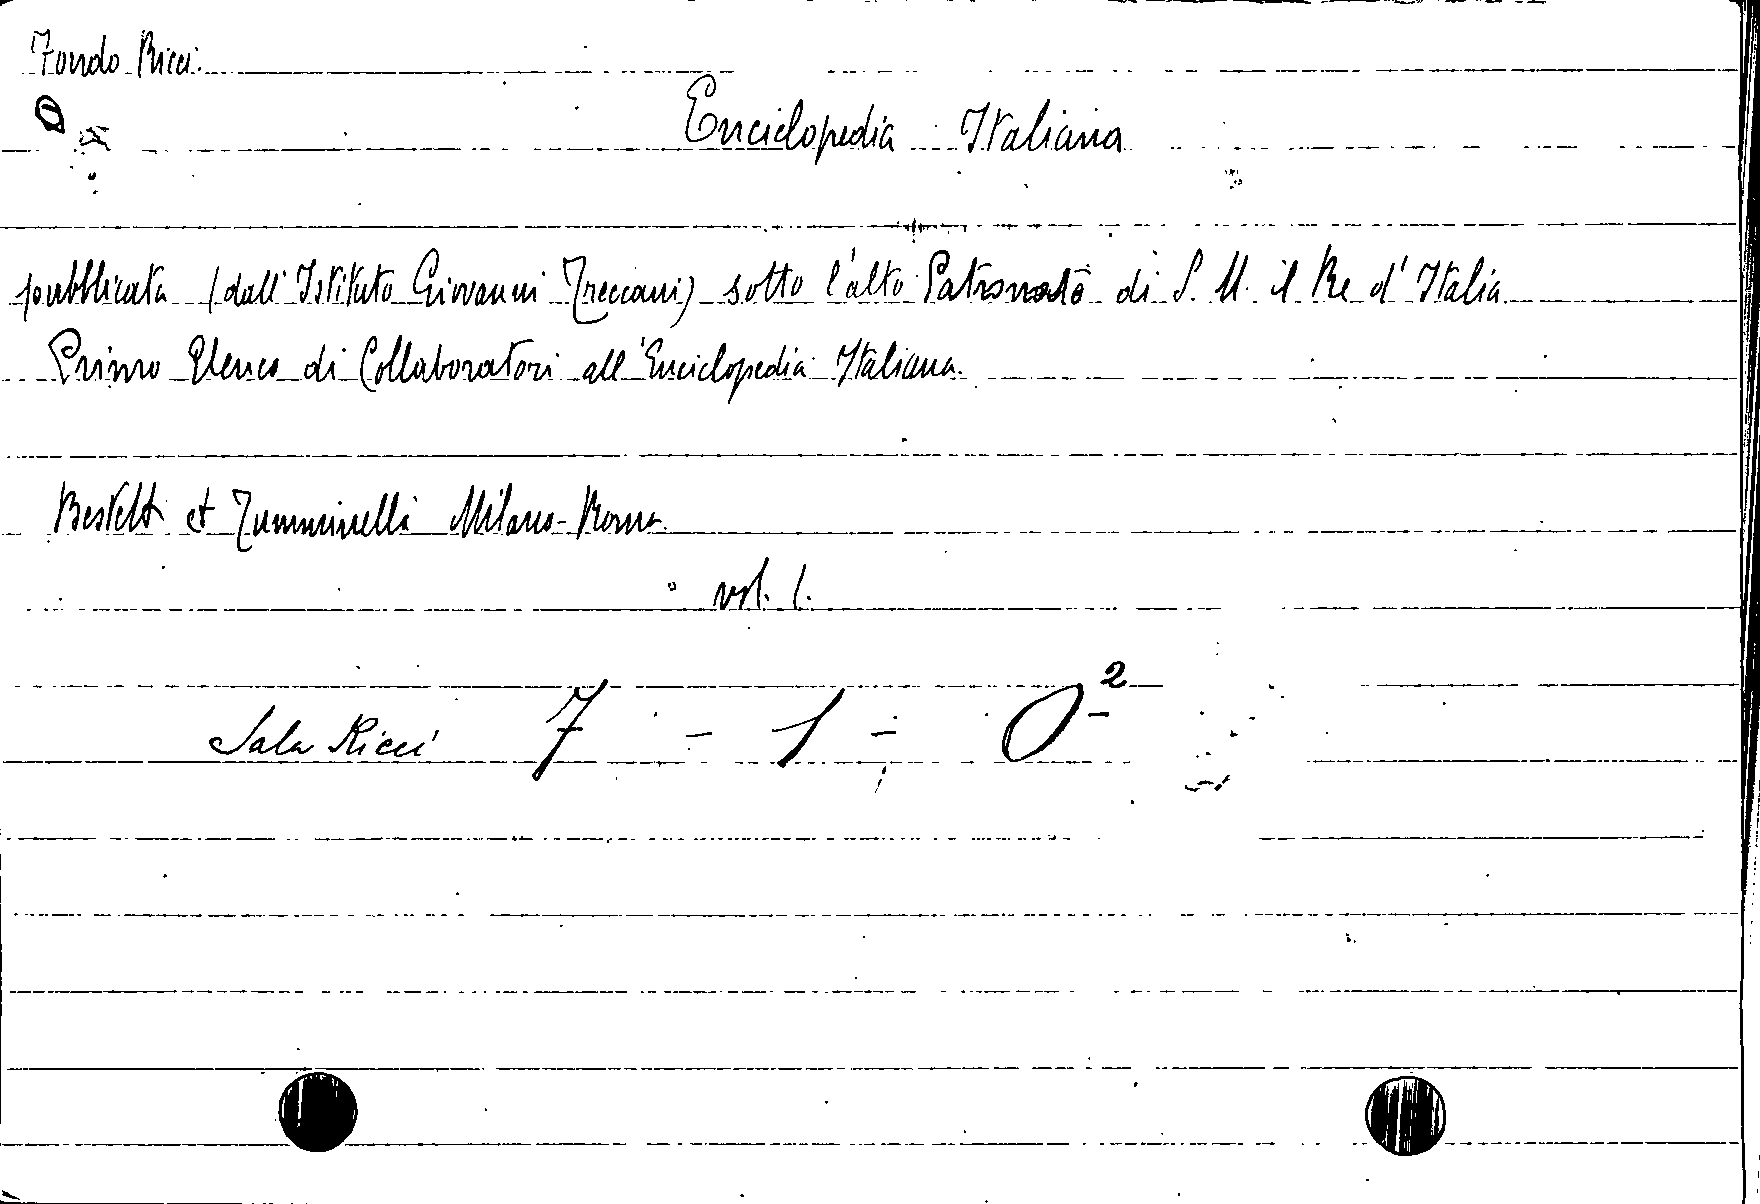 Fondo Ricci.
Enciclopedia Italiana
pubblicata (dall'Istituto Giovanni Treccani) sotto l'alto Patronato di S. M. il Re d'Italia
Primo Elenco di Collaboratori all'Enciclopedia Italiana.
Bestetti et Tumminelli Milano-Roma.
vol. 1.
Sala Ricci 7 - 1 - O²